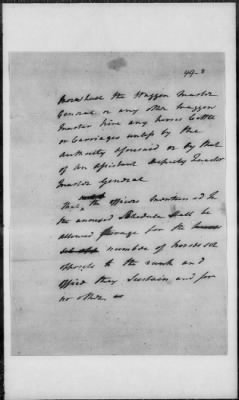 49-3
more hull the Waggon Master
General or any other waggon
Master hire any horses Cattle
or Carriages unless by the
authority aforesaid or by that
of an Assistant Deputy Quarter
Master General
That, the officers mentioned in
the annexed Schedule shall be
allowed forage for the
number of horses set
opposite to the rank and
office they Sustain and for
no other